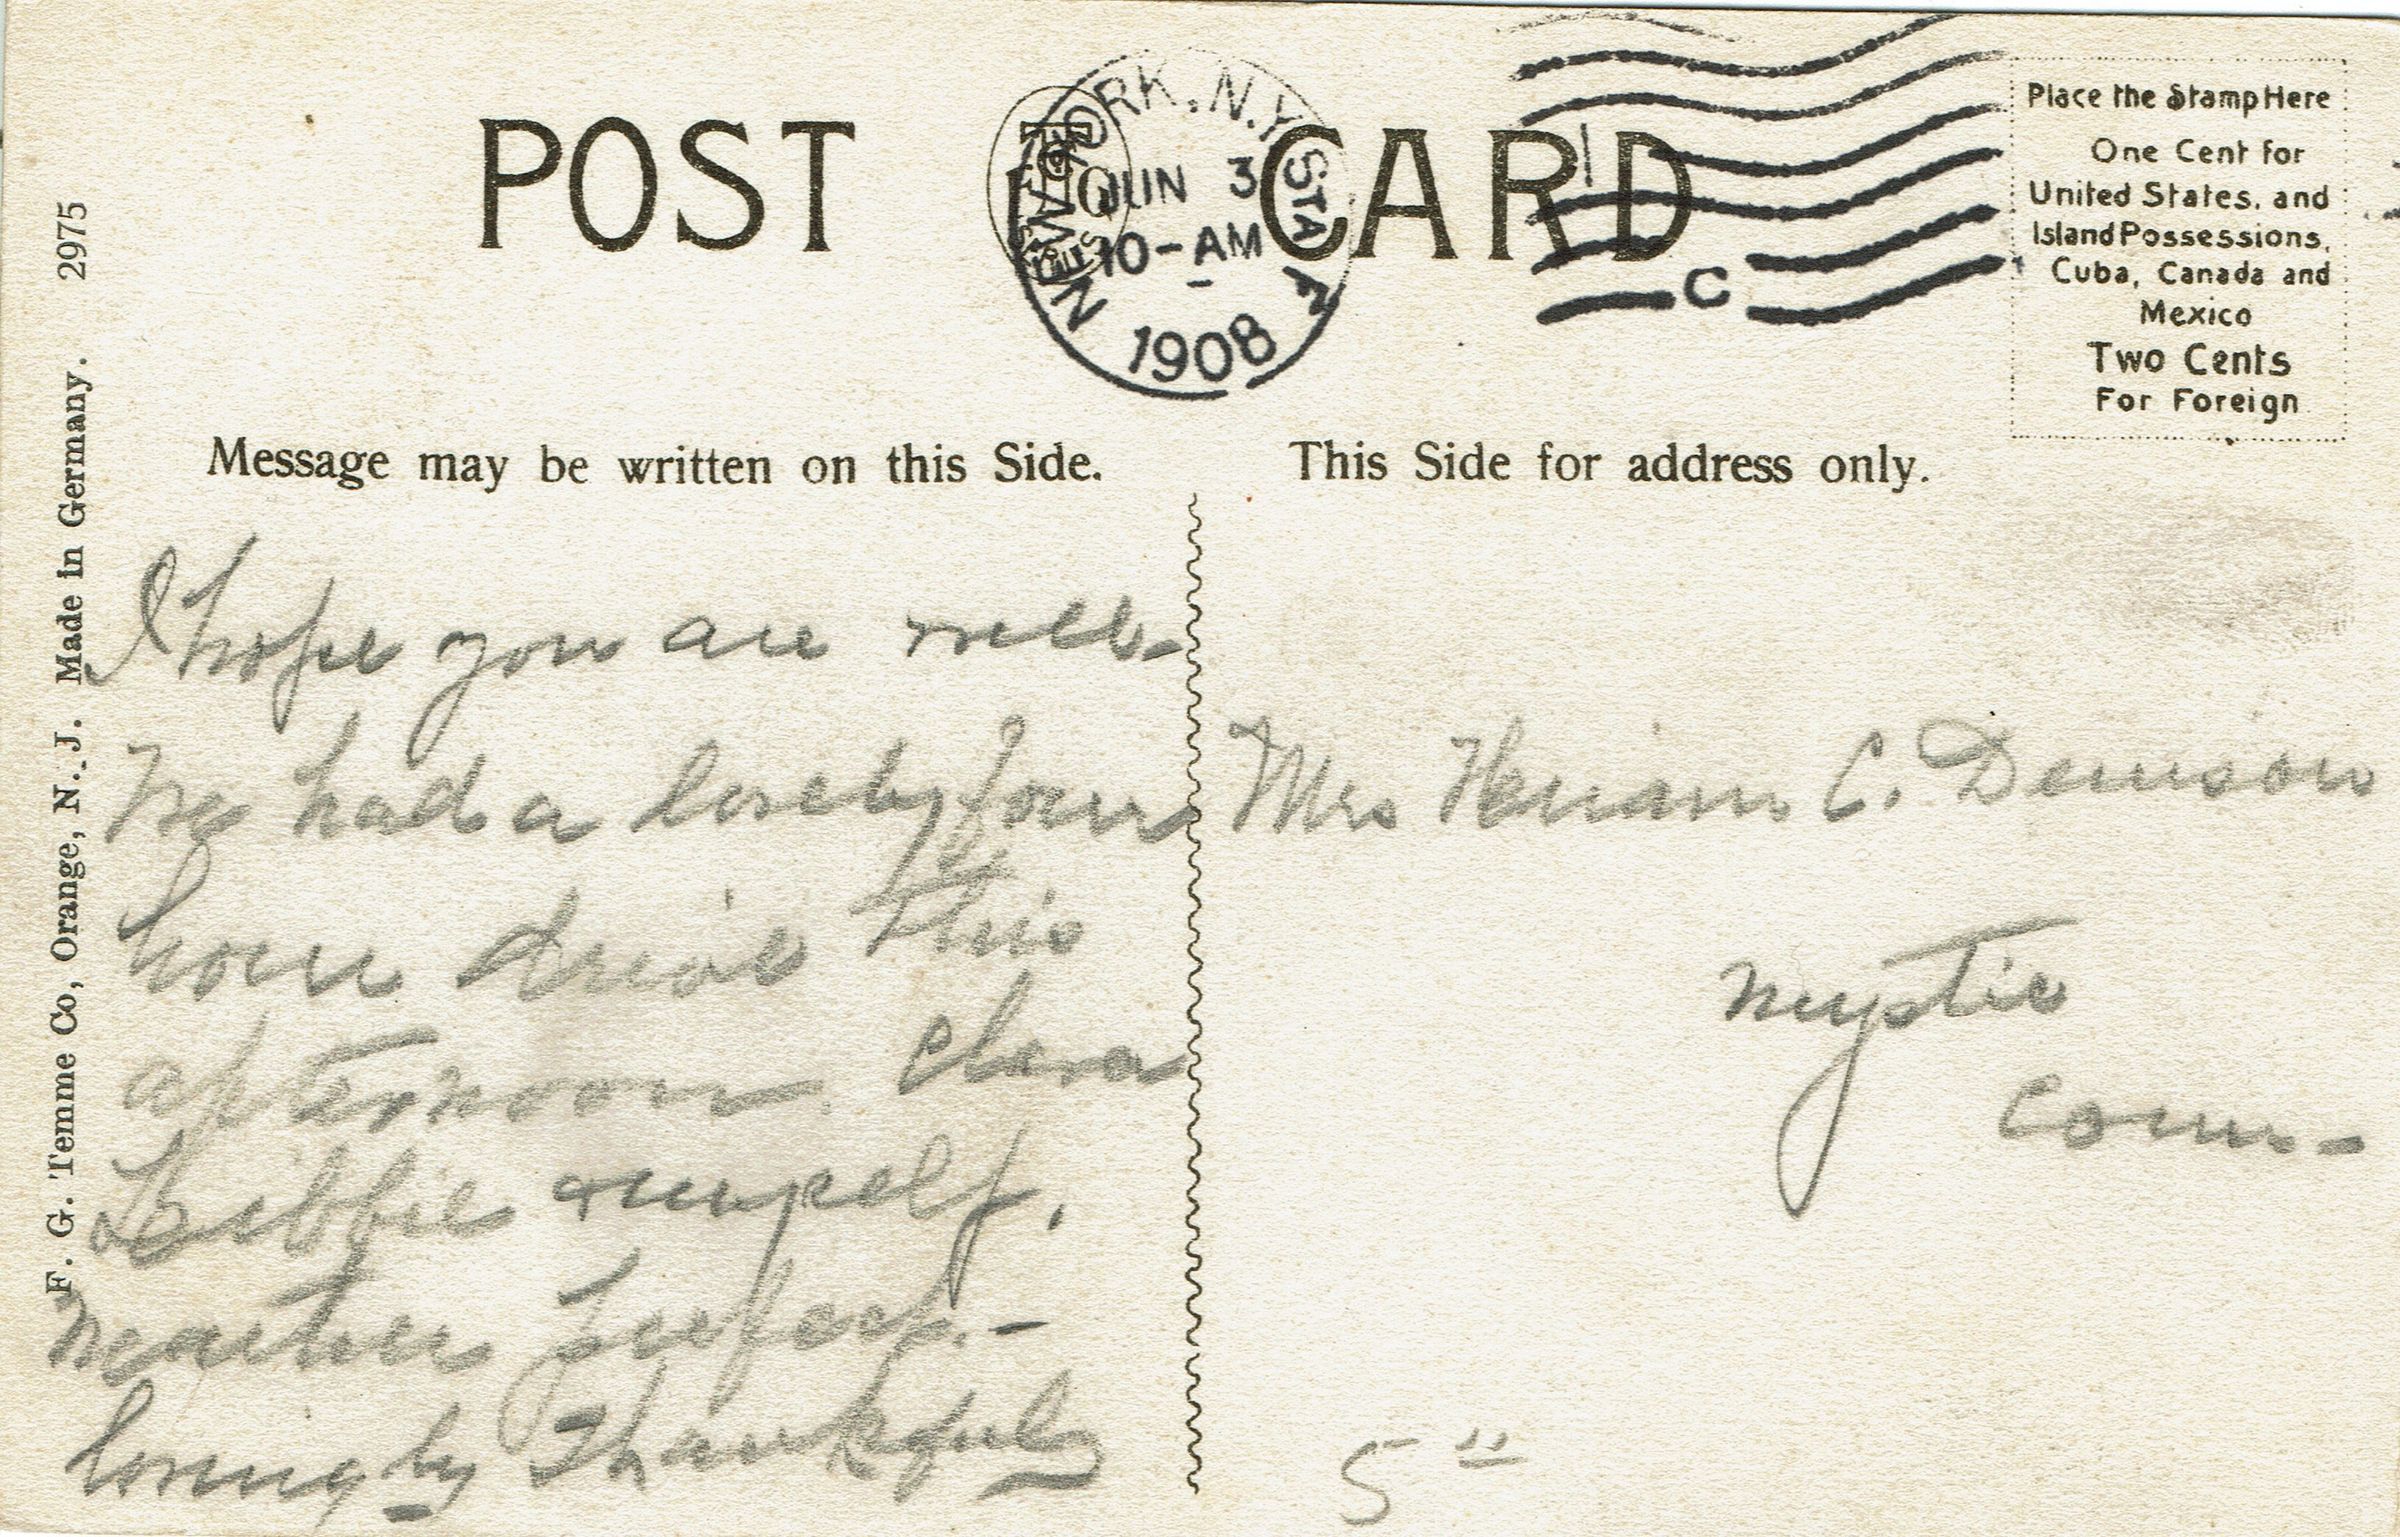 POST CARD
NEW YORK, N.Y. STA F
JUN 3
10-AM
1908
C
Place the Stamp Here
One Cent for
United States, and
Island Possessions,
Cuba, Canada and
Mexico
Two Cents
For Foreign
Message may be written on this Side.
This Side for address only.
F. G. Temme Co, Orange, N. J. Made in Germany. 2975
I hope you are well-
We had a lovely four
hour drive this
afternoon. Clara
Libbie & myself.
Weather perfect.-
Lovingly Thankful
Mrs C. Denison
Mystic
Conn-
5"